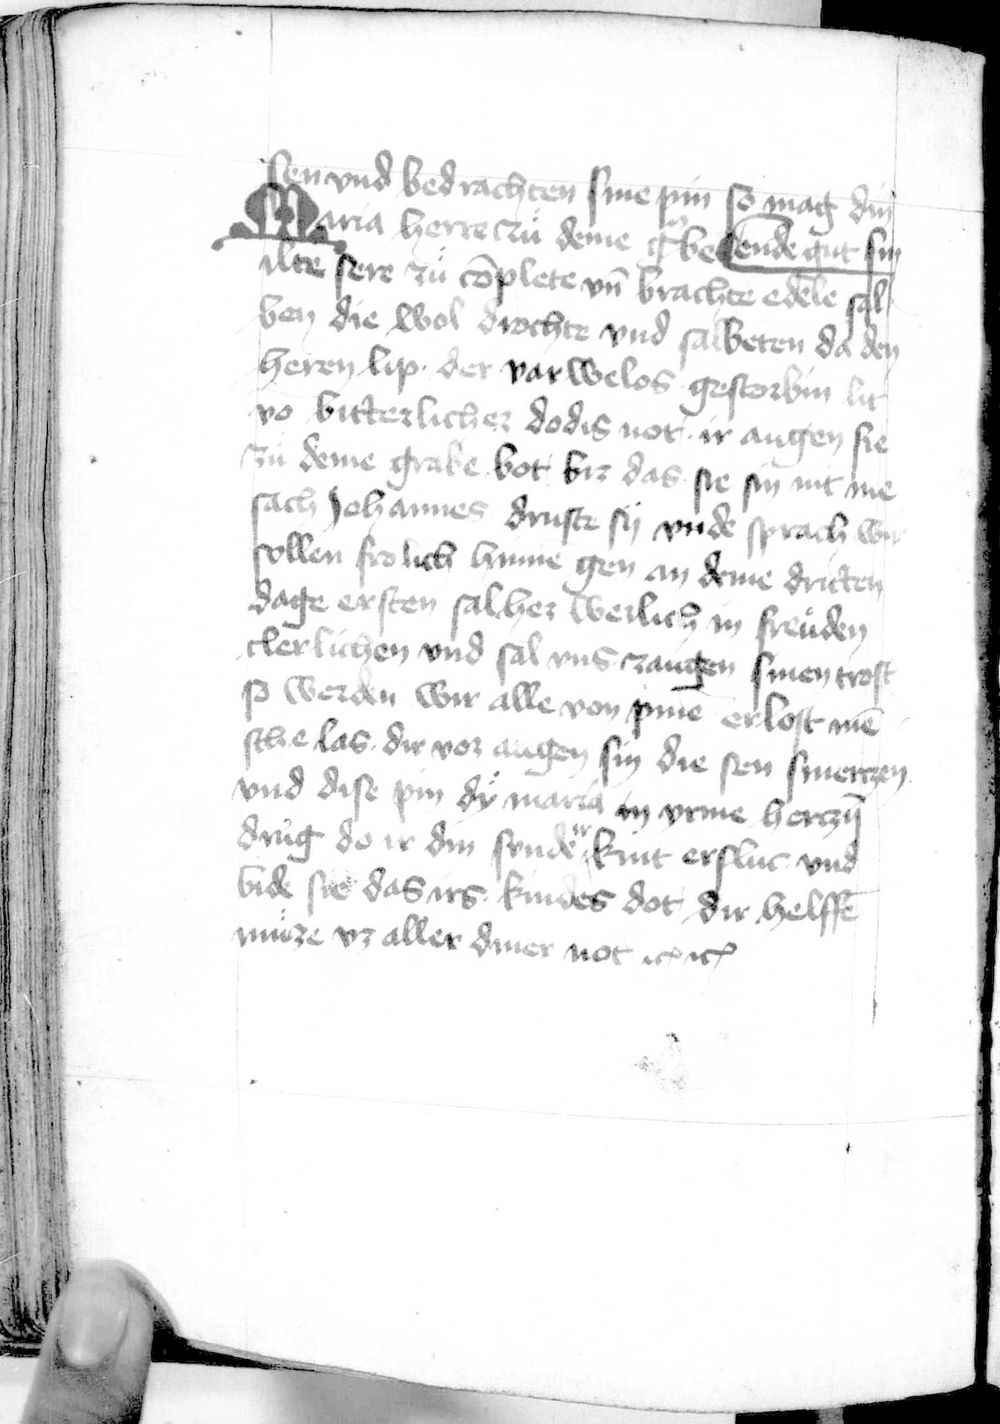 sen vnd bedrachten sine pin so mag din
Maria herre zů deme g be ende gut sin
ilte sere zů cōplete vn̄ brachte edele sal
ben die wol drochte vnd salbeten da den
heren lip · der varwelos gestorbin lit
vō bitterlicher dodis not · ir augen sie
zů deme grabe bot biz das sie sin nit me
sach Johannes druste sÿ vnde sprach wir
sollen frolich hinne gen an deme dritten
dage ersten sal her werlich in freůden
clerlichen vnd sal vns zaugen sinen trost
so werden wir alle von pine erlost mē
sche las dir vor augen sin die sen smerczen
vnd dise pin dÿ maria in yrme herczē
drůg do ir din sunde ir kint ersluc vnd
bide sie das irs kindes dot dir helffē
můze vz aller diner not ⁊c ⁊c